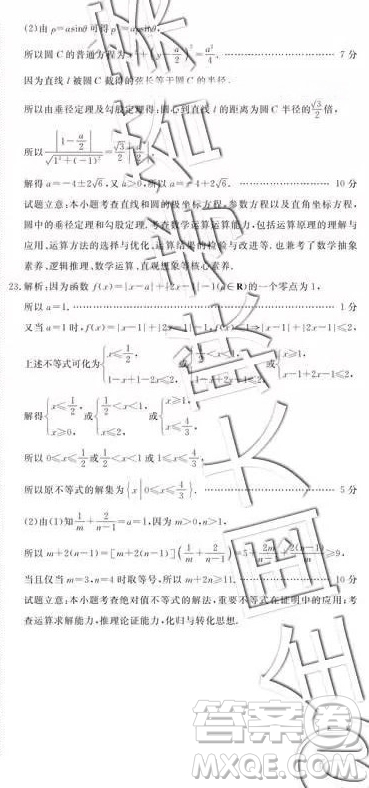 (2)由 ρ=asinθ 可得 ρ²=aρsinθ,
所以圆 C 的普通方程为 x²+(y-a/2)²=a²/4. 7 分
因为直线 l 被圆 C 截得的弦长等于圆 C 的半径.
所以由垂径定理及勾股定理得:圆心到直线 l 的距离为圆 C 半径的 √3/2 倍,
所以 |1-a/2|/√(1²+(-1)²)=√3/2
解得 a=-4±2√6, 又 a>0,所以 a=-4+2√6. 10 分
试题立意:本小题考查直线和圆的极坐标方程,参数方程以及直角坐标方程,
圆中的垂径定理和勾股定理. 考查数学运算运算能力,包括运算原理的理解与
应用、运算方法的选择与优化、运算结果的检验与改进等. 也兼考了数学抽象
素养、逻辑推理、数学运算、直观想象等核心素养.
23.解析:因为函数 f(x)=|x-a|+|2x-1|-1(a∈R)的一个零点为 1,
所以 a=1. 1 分
又当 a=1 时,f(x)=|x-1|+|2x-1|-1,f(x)≤1⇒|x-1|+|2x-1|≤2,
上述不等式可化为{x≤1/2, 1-x+1-2x≤2, 或{1/2<x<1, 1-x+2x-1≤2, 或{x≥1, x-1+2x-1≤2.
解得{x≤1/2, x≥0, 或{1/2<x<1, x≤2, 或{x≥1, x≤4/3,
所以 0≤x≤1/2 或 1/2<x<1 或 1≤x≤4/3,
所以原不等式的解集为{x|0≤x≤4/3}. 5 分
(2)由(1)知 1/m+2/(n-1)=a=1,因为 m>0,n>1,
所以 m+2(n-1)=[m+2(n-1)](1/m+2/(n-1))=5+2m/(n-1)+2(n-1)/m≥9,
当且仅当 m=3,n=4 时取等号,所以 m+2n≥11. 10 分
试题立意:本小题考查绝对值不等式的解法,重要不等式在证明中的应用;考
查运算求解能力,推理论证能力,化归与转化思想.
全国大联考
答案圈